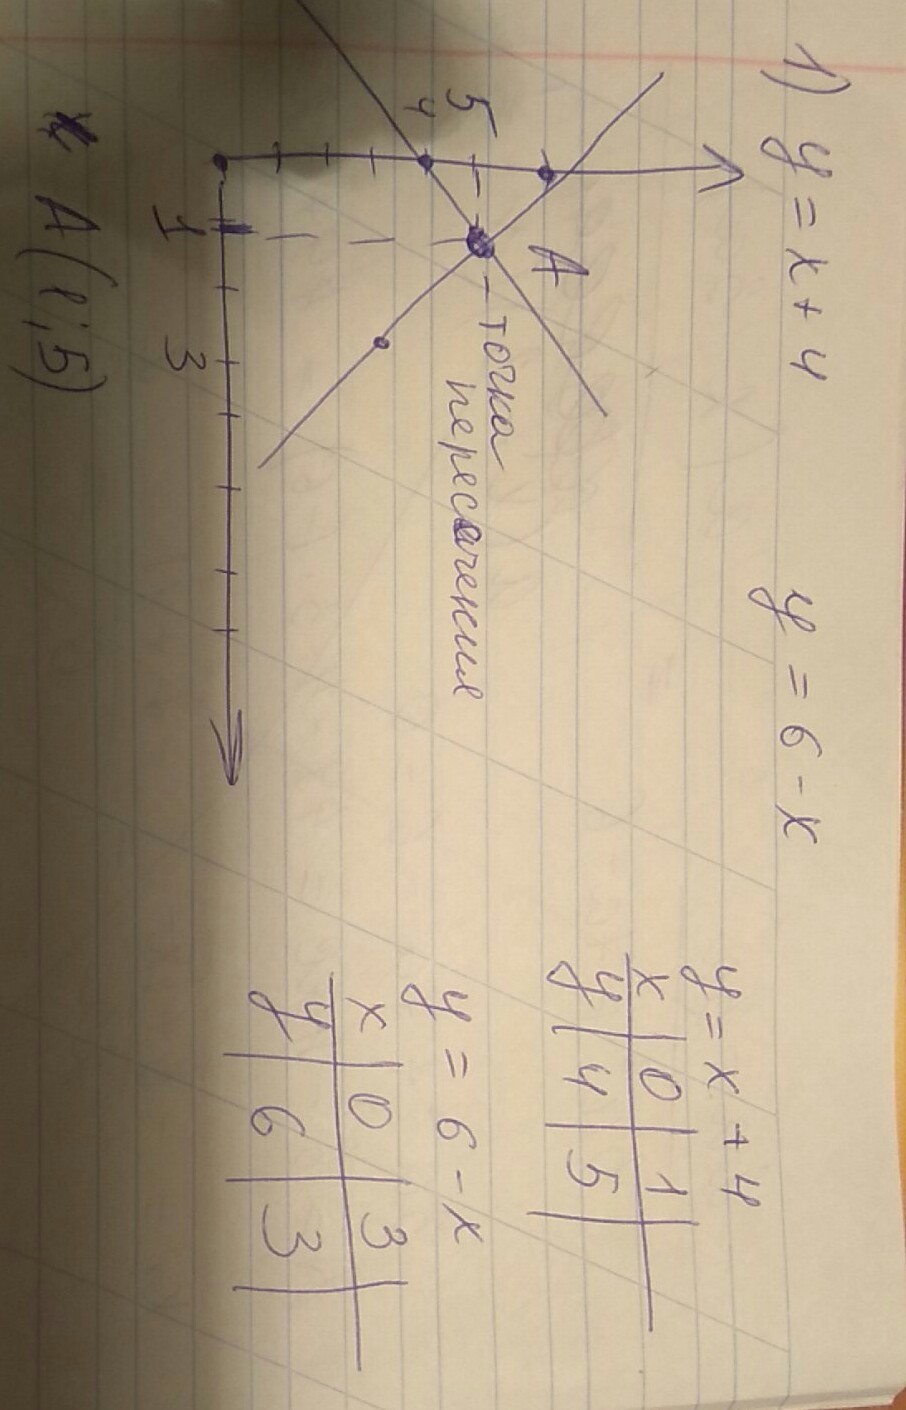 1) y = x + 4 y = 6 - x
5
4
A
точка
пересечения
1 3
A (1; 5)
y = x + 4
x 0 1
y 4 5
y = 6 - x
x 0 3
y 6 3